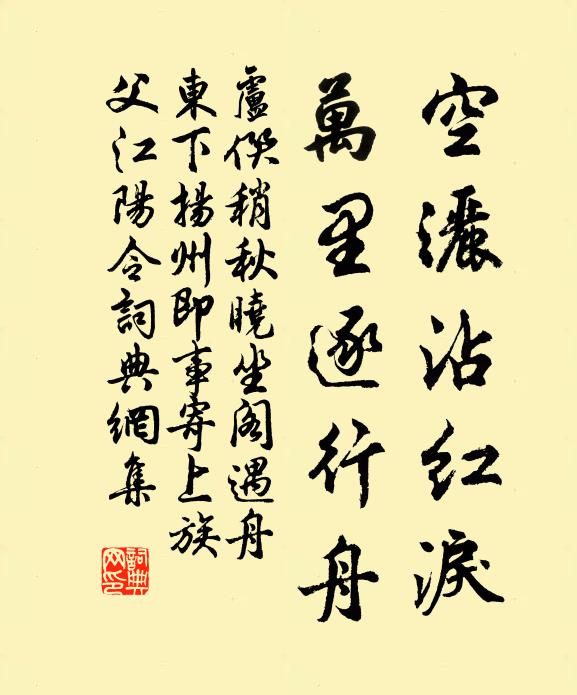 空灑沾紅淚
萬里逐行舟
盧僎稍秋曉坐閣遇舟
東下揚州即事寄上族
父江陽令詞典網集
詞典网印